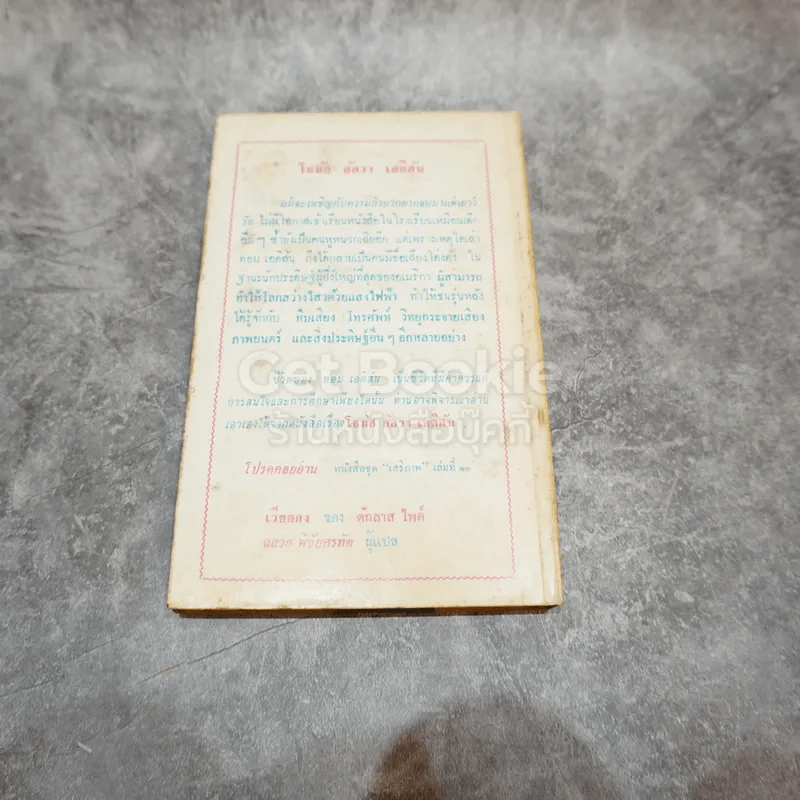 โธมัส อัลวา เอดิสัน
แม้จะเผชิญกับความลำบากยากจนมาแต่เยาว์
วัย ไม่มีโอกาสเข้าเรียนหนังสือในโรงเรียนเหมือนเด็ก
อื่นๆ ซ้ำยังเป็นคนหูหนวกเสียอีก แต่เพราะเหตุใดเล่า
ทอม เอดิสัน ถึงได้กลายเป็นคนมีชื่อเสียงโด่งดัง ใน
ฐานะนักประดิษฐ์ผู้ยิ่งใหญ่ที่สุดของอเมริกา ผู้สามารถ
ทำให้โลกสว่างไสวด้วยแสงไฟฟ้า ทำให้ชนรุ่นหลัง
ได้รู้จักกับ หีบเสียง โทรศัพท์ วิทยุกระจายเสียง
ภาพยนตร์ และสิ่งประดิษฐ์อื่นๆ อีกหลายอย่าง
ชีวิตของ ทอม เอดิสัน เป็นชีวิตที่มีค่าควรแก่
การสนใจและการศึกษาเพียงใดนั้น ท่านอาจพิจารณาอ่าน
เอาเองได้จากหนังสือเรื่อง โธมัส อัลวา เอดิสัน
Get Bookie
ร้านหนังสือบุ๊คกี้
โปรดคอยอ่าน หนังสือชุด "เสรีภาพ" เล่มที่ ๑๐
เวียดกง ของ ดักลาส ไพค์
ฉลวย พิชัยศรทัต ผู้แปล